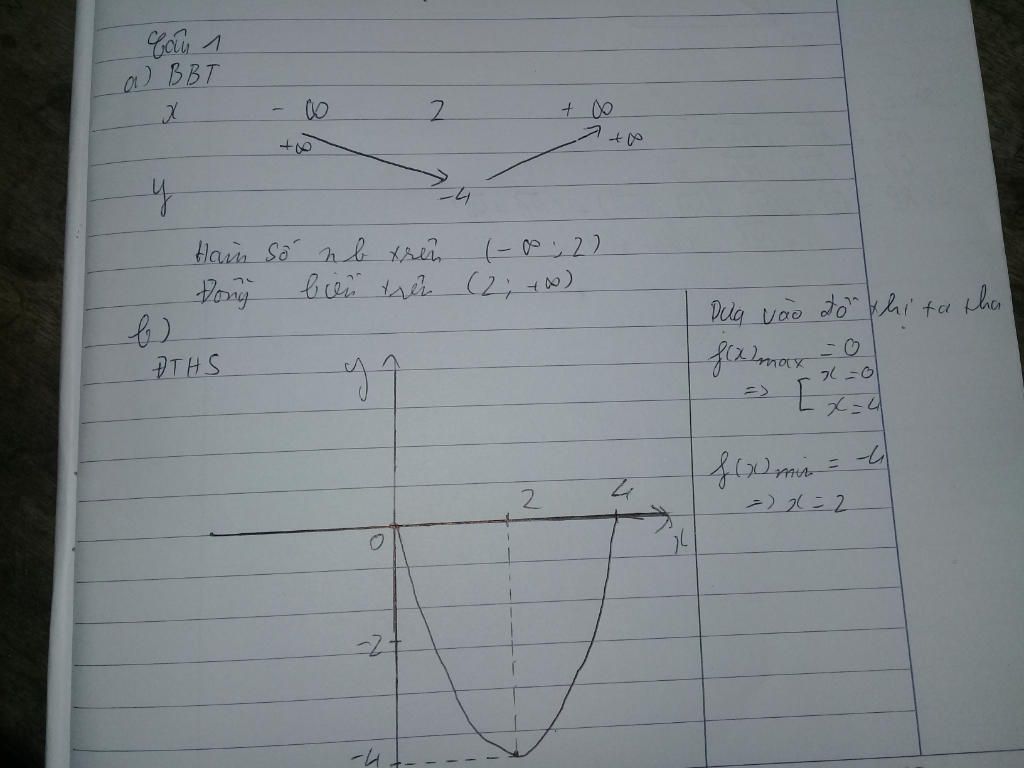 Câu 1
a) BBT
x - ∞ 2 + ∞
+∞ +∞
y -4
Hàm số nb trên (-∞; 2)
Đồng biến trên (2; +∞)
b)
ĐTHS
y
2 4
0 x
-2
-4
Dựa vào đồ thị ta tha
f(x)max = 0
=> [ x = 0
x = 4
f(x)min = -4
=> x = 2